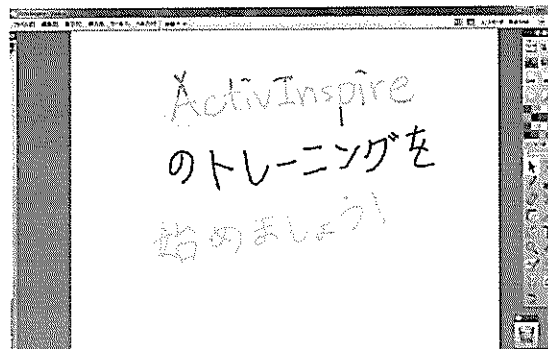 ActivInspire
のトレーニングを
始めましょう!